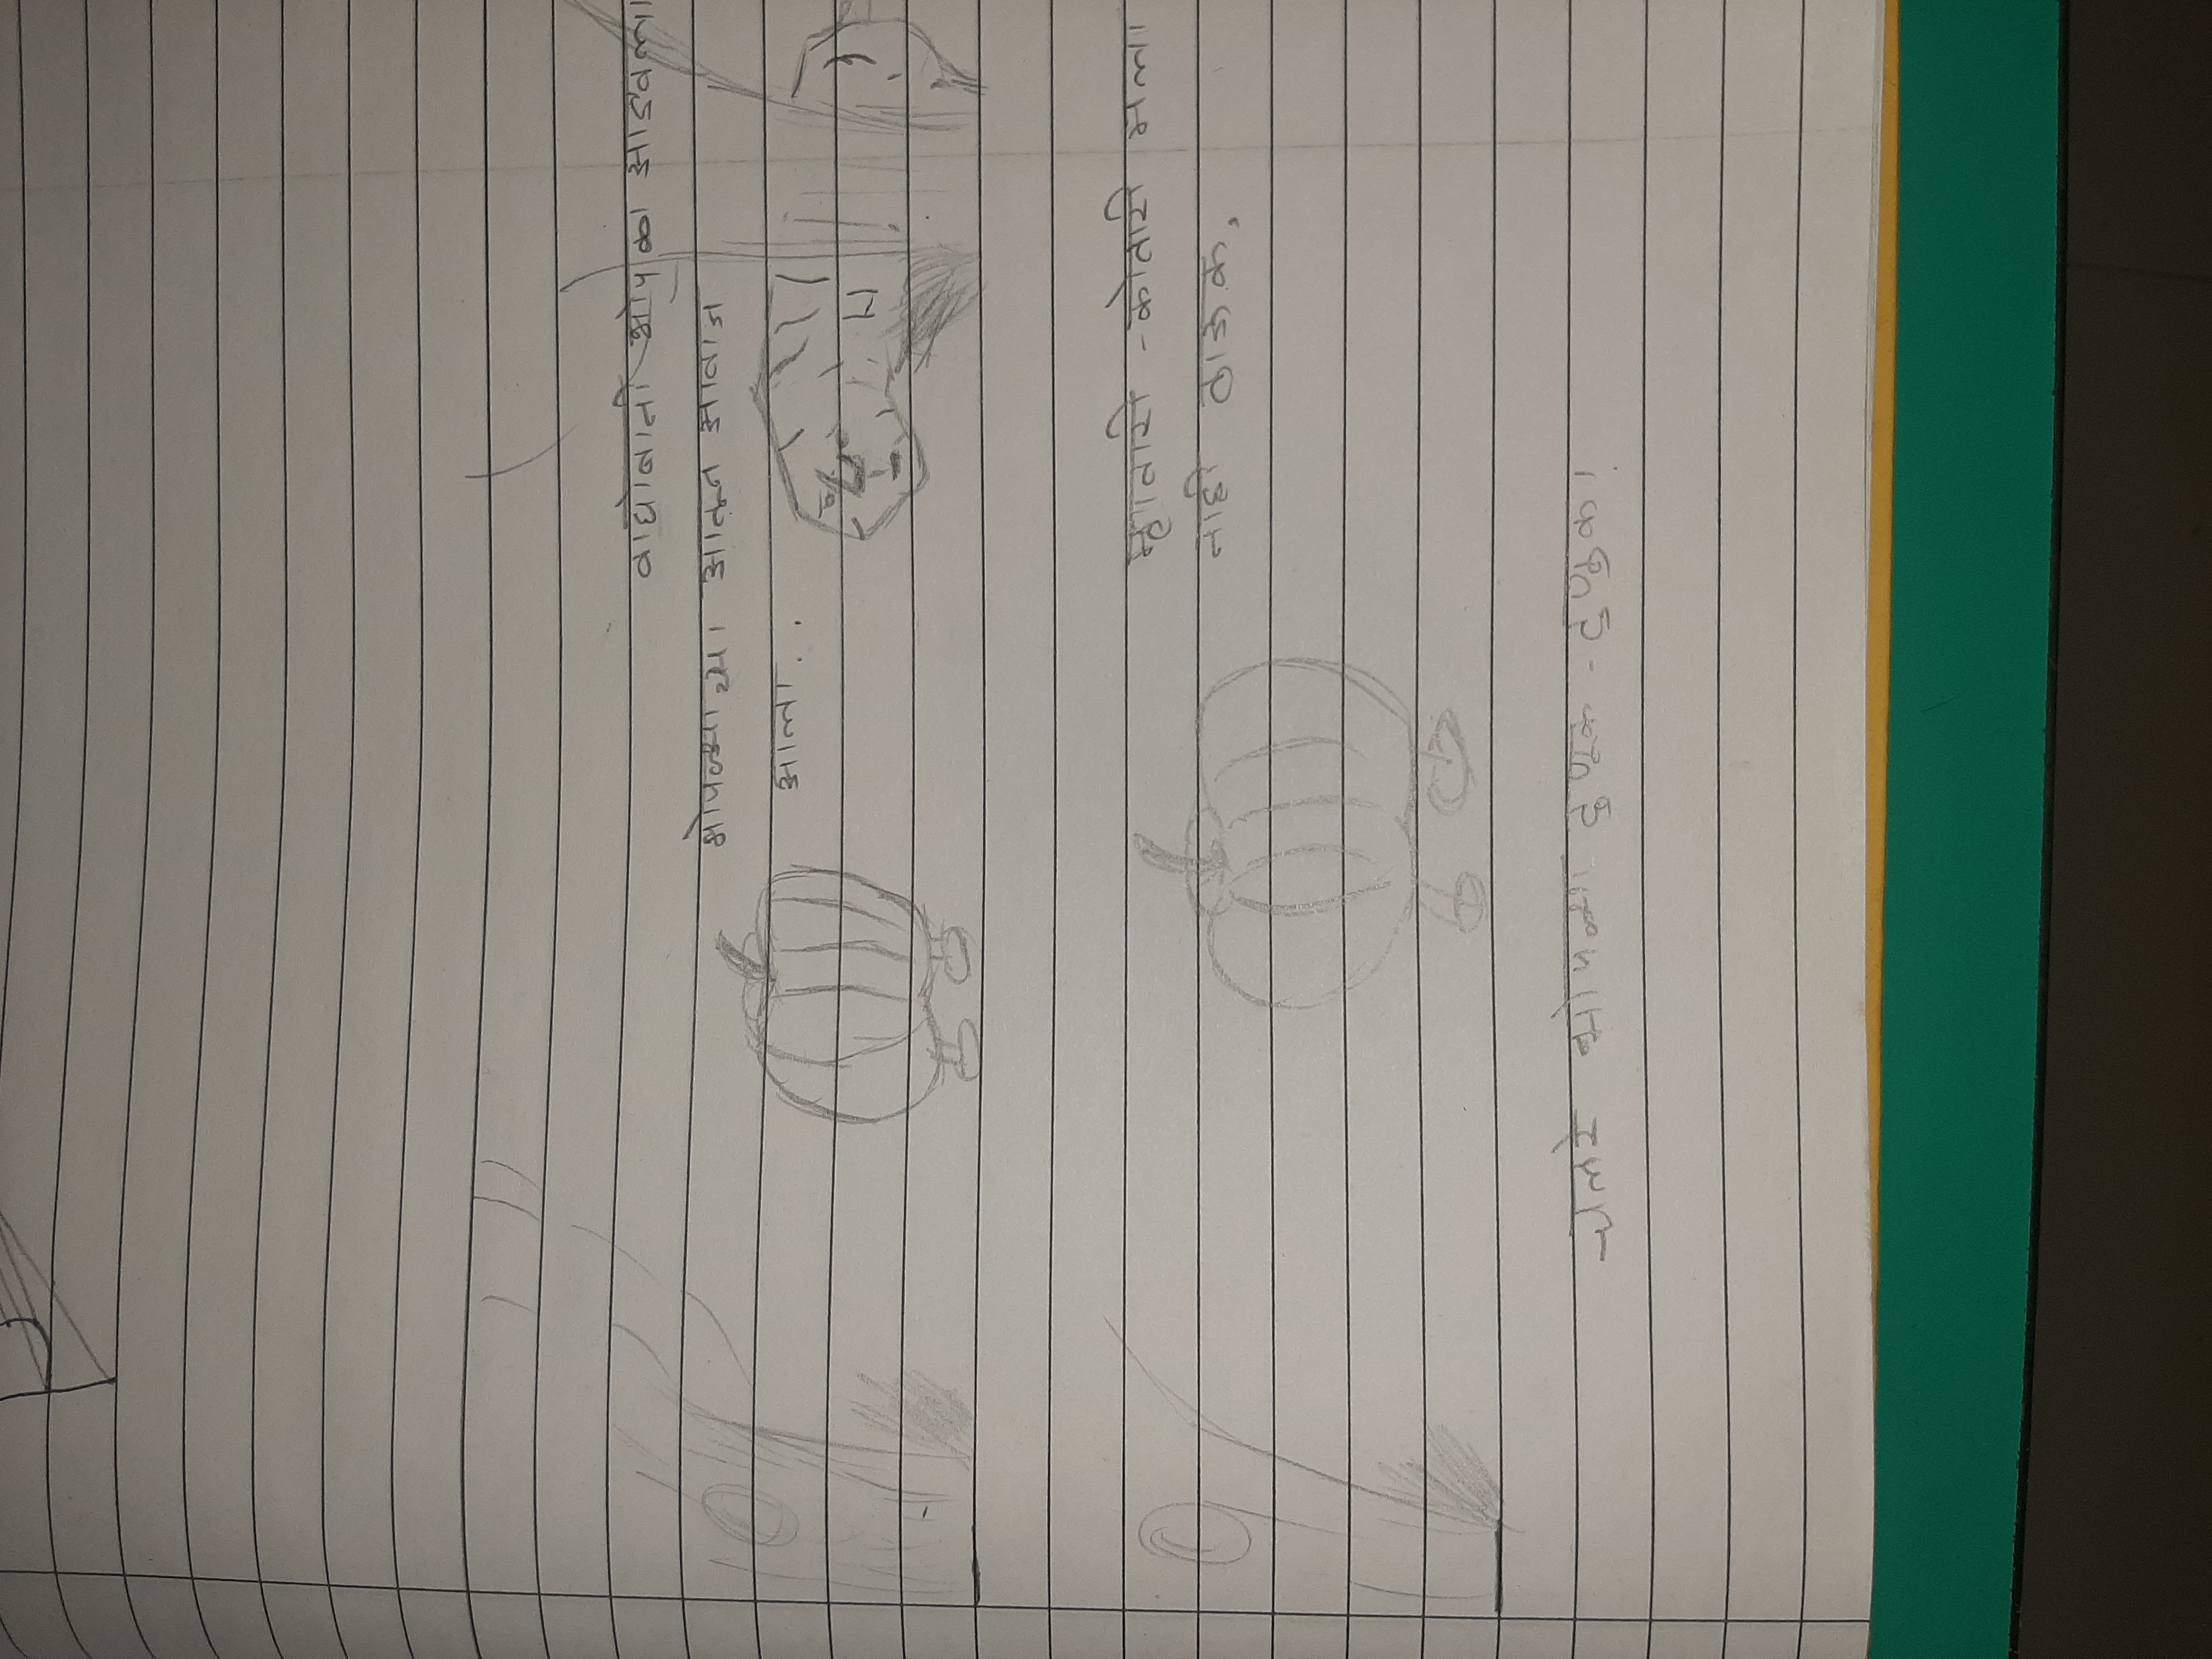 वाघोबानी भोपळा आडवला
भोपळ्याच्या आतून आवाज
आला..
म्हातारी - कोतारी मला
नाही ठाऊक,
चलरे भोपळ्या टुणूक - टुणुक!